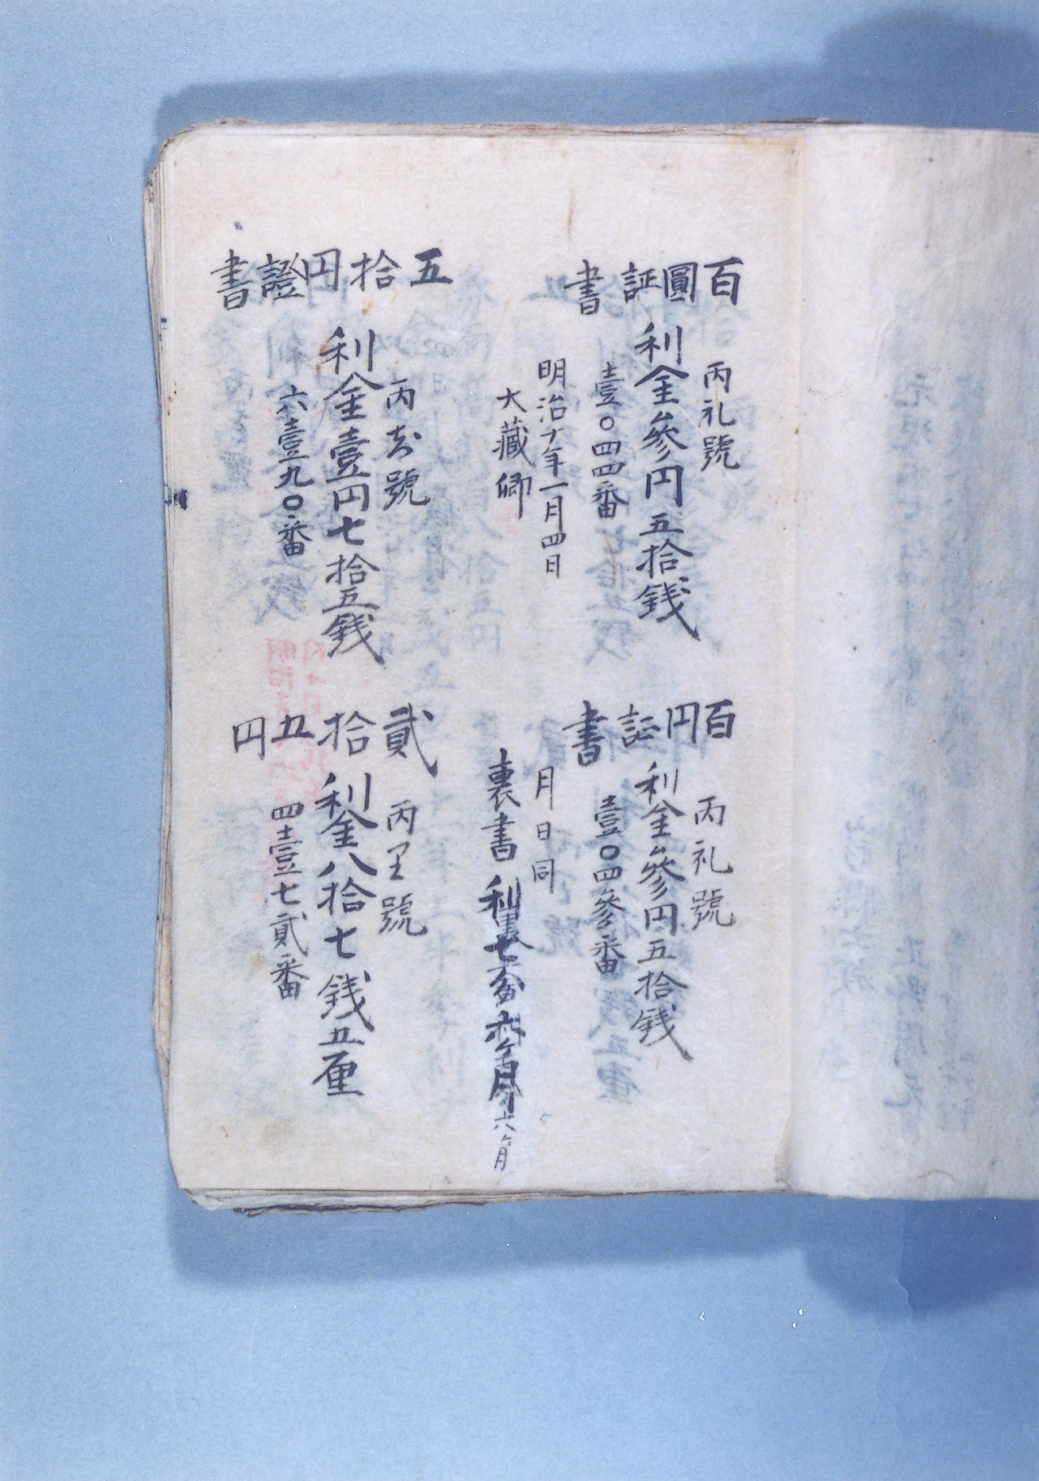 百圓証書
丙礼號
利金參円五拾銭
壹〇四四番
明治十年一月四日
大藏卿
百円証書
丙礼號
利金參円五拾銭
壹〇四參番
月日同
裏書
六ケ月
五拾円證書
丙 號
利金壹円七拾五銭
六壹九〇番
貳拾五円
丙 號
利金八拾七銭五厘
四壹七貳番